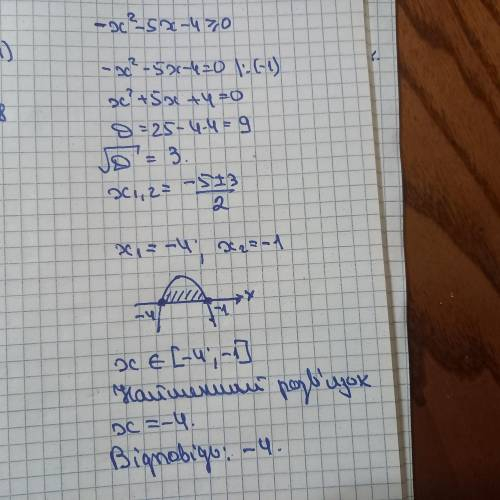 -x²-5x-4⩾0
-x²-5x-4=0 |:(-1)
x²+5x+4=0
D=25-4·4=9
√D = 3.
x₁,₂ = (-5±3)/2
x₁=-4; x₂=-1
-4 -1 x
x ∈ [-4;-1]
Найменший розв'язок
x=-4.
Відповідь: -4.